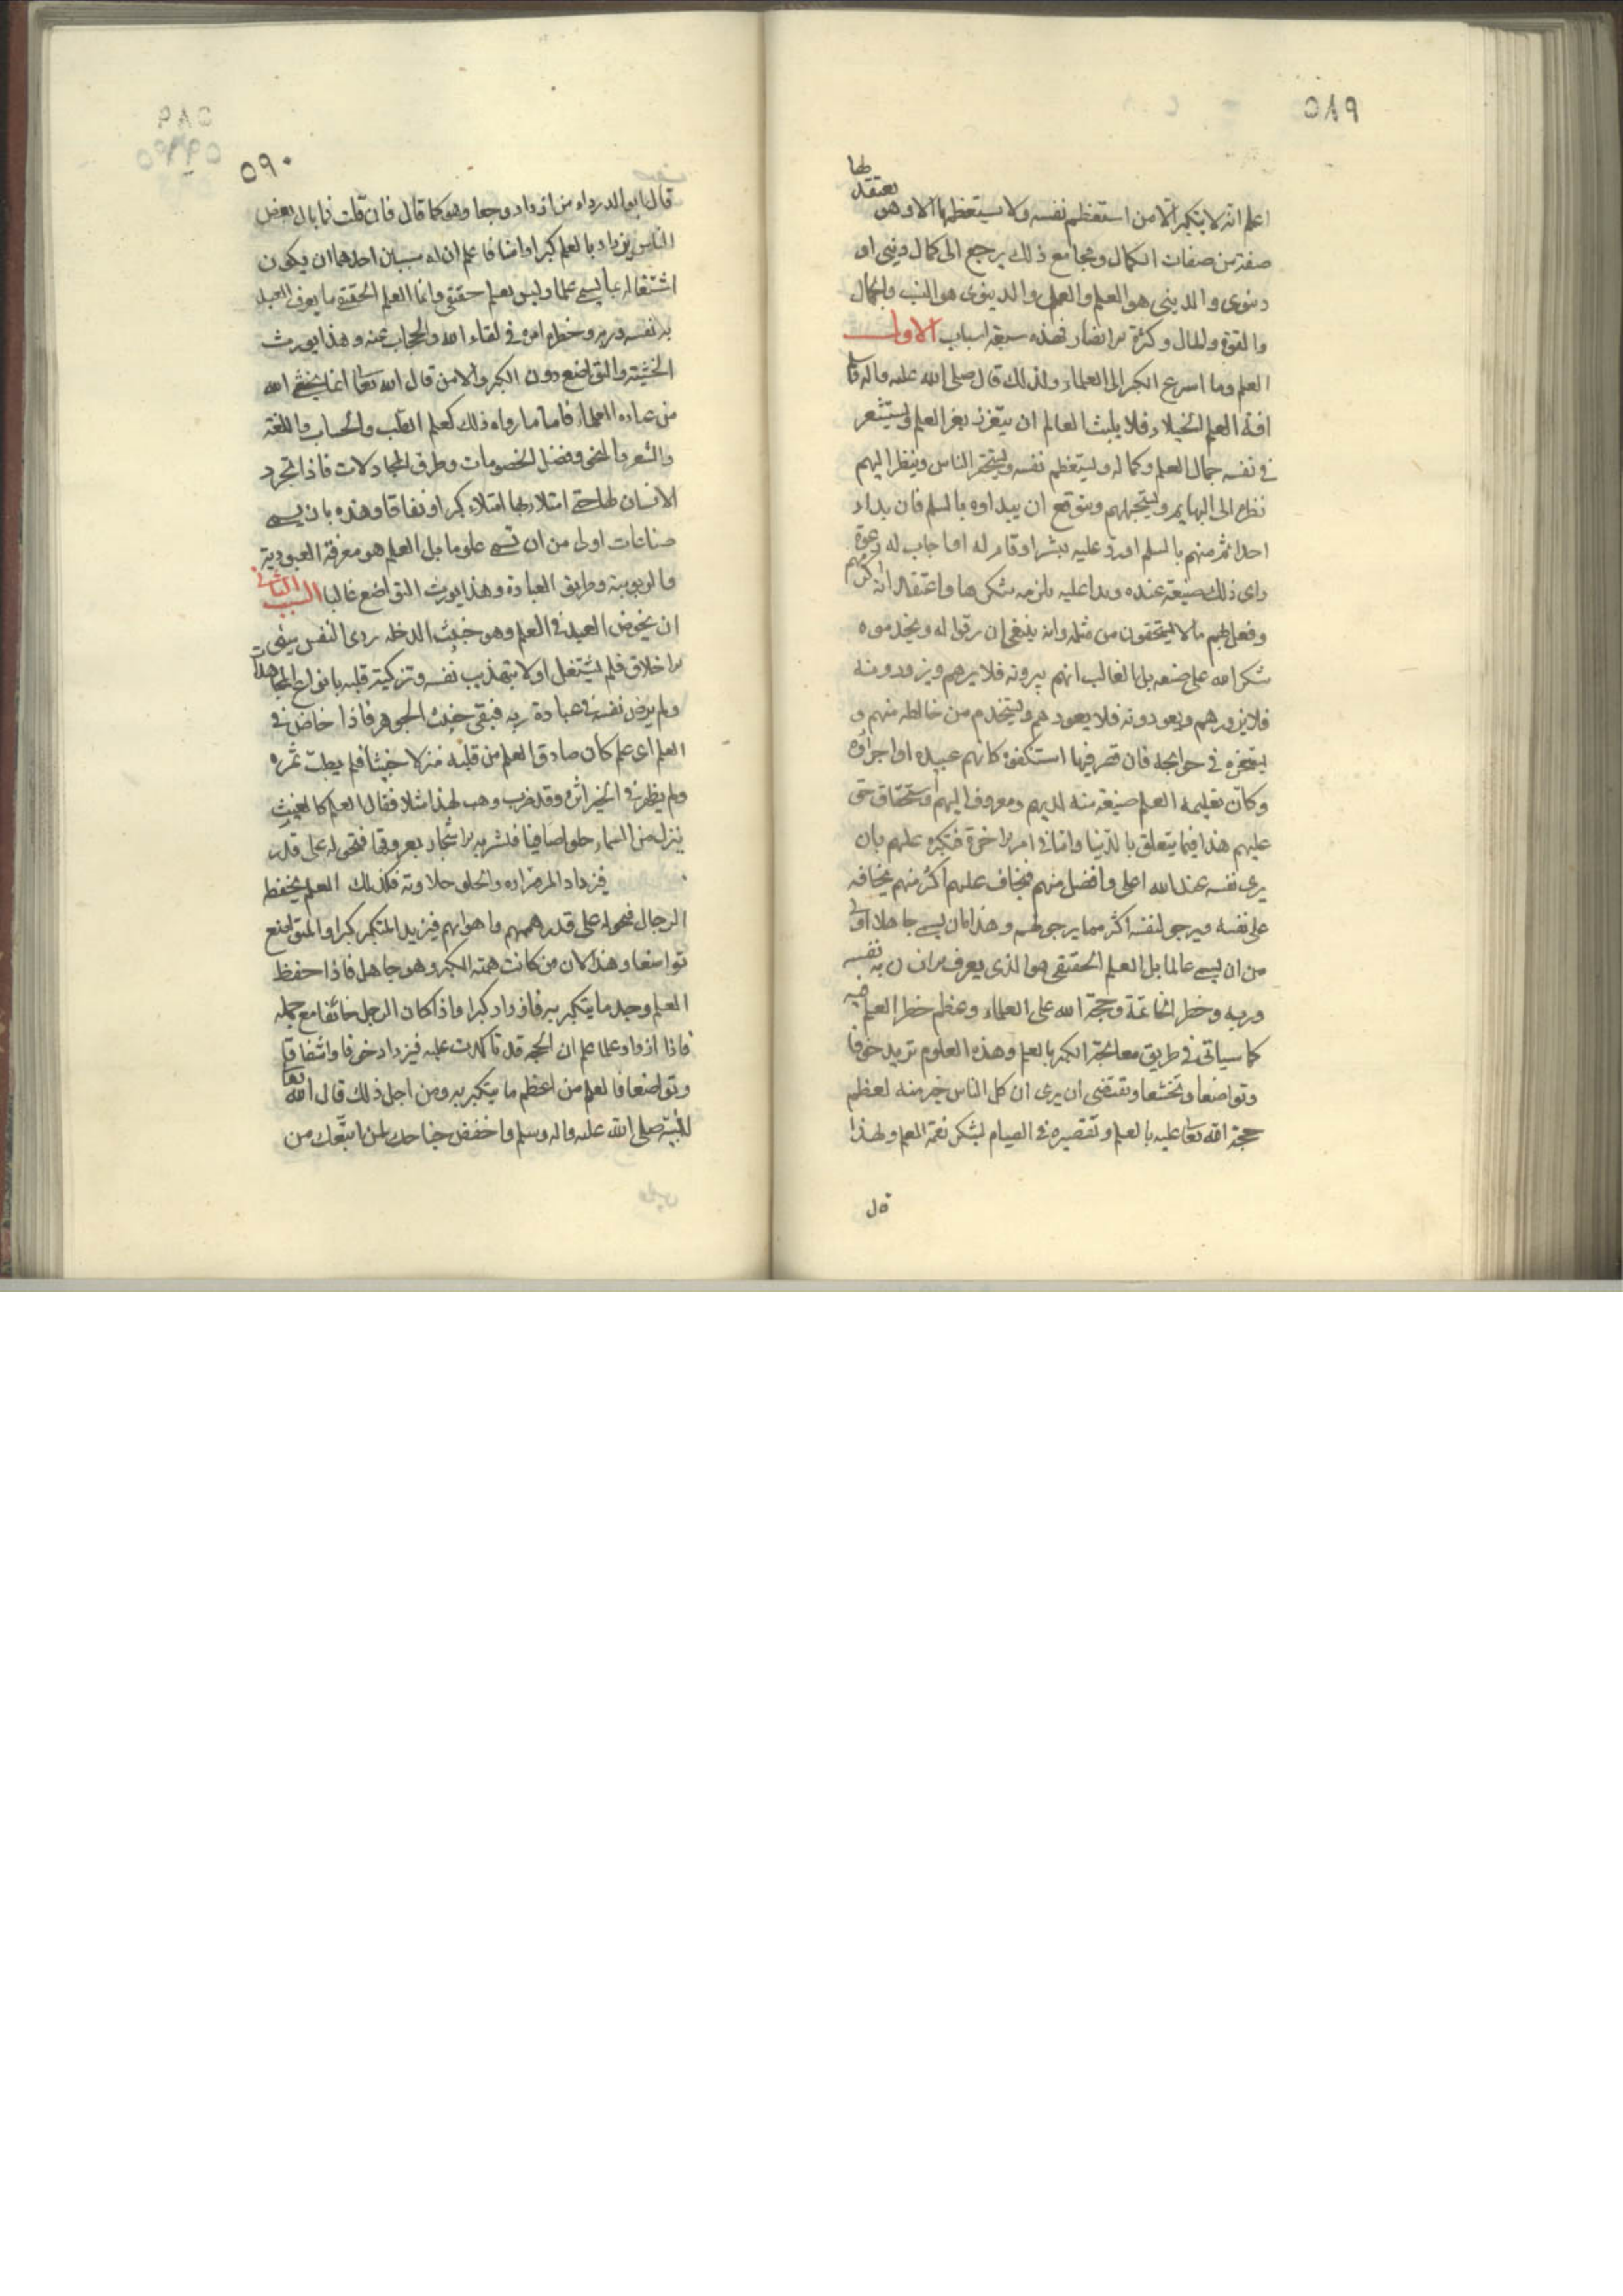 ٥٨٩
اعلم انه لا يتكبر الا من استعظم نفسه ولا يستعظمها الا وهو يعتقد لها
صفة من صفات الكمال ومجامع ذلك يرجع الى كمال ديني او
دنيوى والديني هو العلم والعمل والدينوى هو النسب والجمال
والقوة والمال وكثرة الانصار فهذه سبعة اسباب الاول
العلم وما اسرع الكبر الى العلماء ولذلك قال صلى الله عليه واله
افة العلم الخيلاء فلا يلبث العالم ان يتعزز بعز العلم ويستشعر
في نفسه جمال العلم وكماله ويستعظم نفسه ويستحقر الناس وينظر اليهم
نظره الى البهايم ويستجهلهم ويتوقع ان يبداوه بالسلم فان بداء
احدا منهم بالسلم او رد عليه ببشر او قام له او اجاب له دعوة
راى ذلك صنيعة عنده ويدا عليه يلزمه شكرها واعتقد انه اكرمهم
وفعل بهم ما لا يستحقون من مثله وانه ينبغى ان يرقوا له ويخدموه
شكرا له على صنعه بل الغالب انهم يبرونه فلا يبرهم ويزورونه
فلا يزورهم ويعودونه فلا يعودهم ويستخدم من خالطه منهم و
يستسخره في حوايجه فان قصر فيها استنكفوه كانهم عبيده او اجراؤه
وكان تعليمه العلم صنيعة منه لديهم ومعروف اليهم واستحقاق حق
عليهم هذا فيما يتعلق بالدنيا واما في امر الاخرة فتكبره عليهم بان
يرى نفسه عند الله اعلى وافضل منهم فيخاف عليهم اكثر منهم يخافه
على نفسه ويرجو لنفسه اكثر مما يرجو لهم وهذا بان يسمى جاهلا اولى
من ان يسمى عالما بل العلم الحقيقي هو الذى يعرف الانسان به نفسه
وربه وخطر الخاتمة وحجة الله على العلماء وعظم خطر العلم فيه
كما سياتى في طريق معالجة الكبر بالعلم وهذه العلوم تزيد خوفا
وتواضعا وتخشعا وتقتضى ان يرى ان كل الناس خير منه لعظم
حجة الله تعا عليه بالعلم وتقصيره في القيام لشكر نعمة العلم ولهذا
قال
٥٩٠
قال ابو الدرداء من ازداد وجعا وهو كما قال فان قلت فما بال بعض
الناس يزداد بالعلم كبرا وامنا فاعلم ان له سببين احدهما ان يكون
اشتغاله بما يسمى علما وليس بعلم حقيقي وانما العلم الحقيقة ما يعرف العبد
به نفسه وربه وخطر امره في لقاء الله والحجاب عنه وهذا يورث
الخشية والتواضع دون الكبر والامن قال الله تعا انما يخشى الله
من عباده العلماء فاما ما رواه ذلك كعلم الطب والحساب واللغة
والشعر والنحو وفصل الخصومات وطرق المجادلات فاذا تجرد
الانسان لها حتى امتلاء بها امتلاء كبرا ونفاقا وهذه بان يسمى
صناعات اولى من ان تسمى علوما بل العلم هو معرفة العبودية
والربوبية وطريق العبادة وهذا يورث التواضع غالبا السبب الثاني
ان يخوض العبد في العلم وهو خبيث الدخله ردى النفس سيئ
الاخلاق فلم يشتغل اولا بتهذيب نفسه وتزكية قلبه بانواع المجاهدات
ولم يرض نفسه في عبادة ربه فبقى خبيث الجوهر فاذا خاض في
العلم اى علم كان صادف العلم من قلبه منزلا خبيثا فلم يطب ثمره
ولم يظهر في الخير اثره وقد ضرب وهب لهذا مثلا فقال العلم كالغيث
ينزل من السماء حلوا صافيا فتشربه الاشجار بعروقها فتحوله على قدر
فيزداد المر مرارة والحلو حلاوته فكذلك العلم يحفظه
الرجال فتحوله على قدر هممهم واهوائهم فيزيد المتكبر كبرا والمتواضع
تواضعا وهذا لان من كانت همته الكبر وهو جاهل فاذا حفظ
العلم وجد ما يتكبر به فازداد كبرا واذا كان الرجل خائفا مع جهله
فاذا ازداد علما علم ان الحجه قد تاكدت عليه فيزداد خوفا واشفاقا
وتواضعا فالعلم من اعظم ما يتكبر به ومن اجل ذلك قال الله تعا
لنبيه صلى الله عليه واله وسلم واخفض جناحك لمن اتبعك من